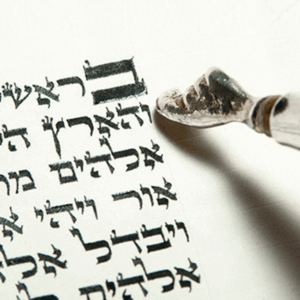 בראשי
והארץ
אלהים מר
אור ויהי
ויבדל אל
אלהים